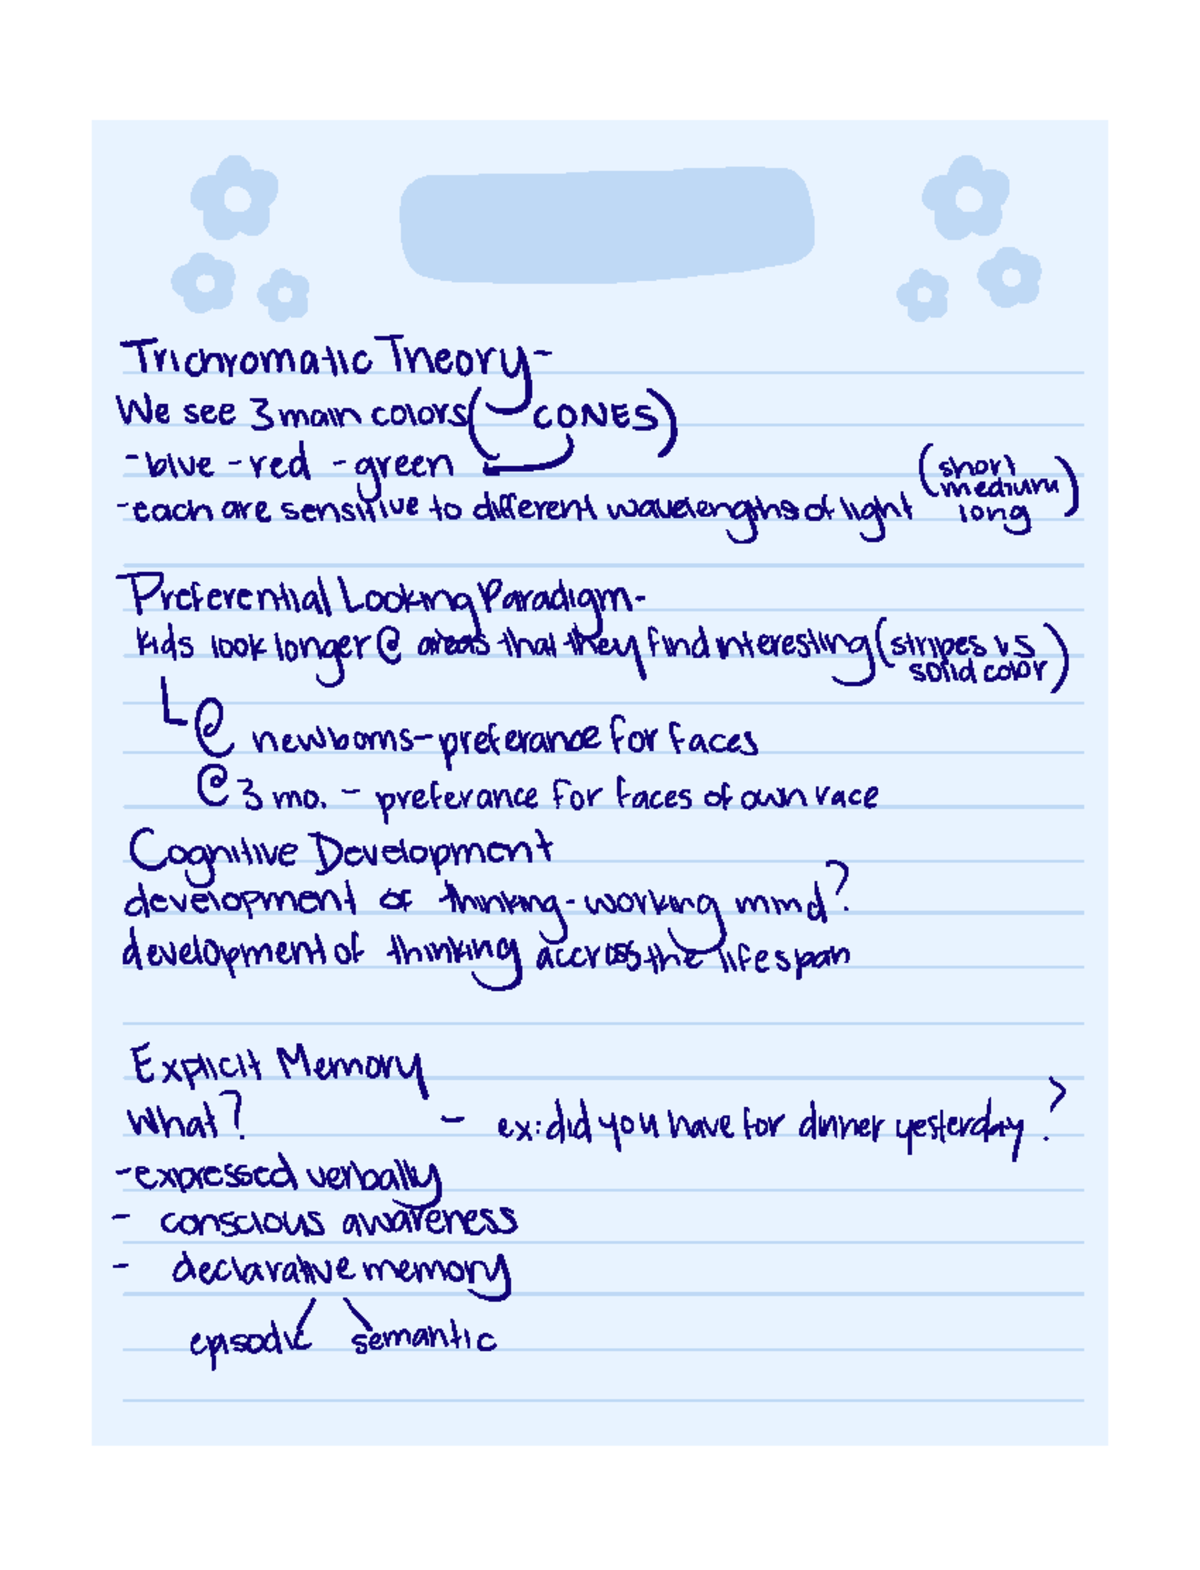 Trichromatic Theory-
We see 3 main colors ( CONES )
-blue -red -green
-each are sensitive to different wavelengths of light (short medium long)
Preferential Looking Paradigm-
kids look longer @ areas that they find interesting (stripes vs solid color)
@ newborns-preferance for faces
@ 3 mo. - preferance for faces of own race
Cognitive Development
development of thinking-working mind?
development of thinking accross the lifespan
Explicit Memory
What? - ex: did you have for dinner yesterday?
-expressed verbally
- conscious awareness
- declarative memory
episodic semantic